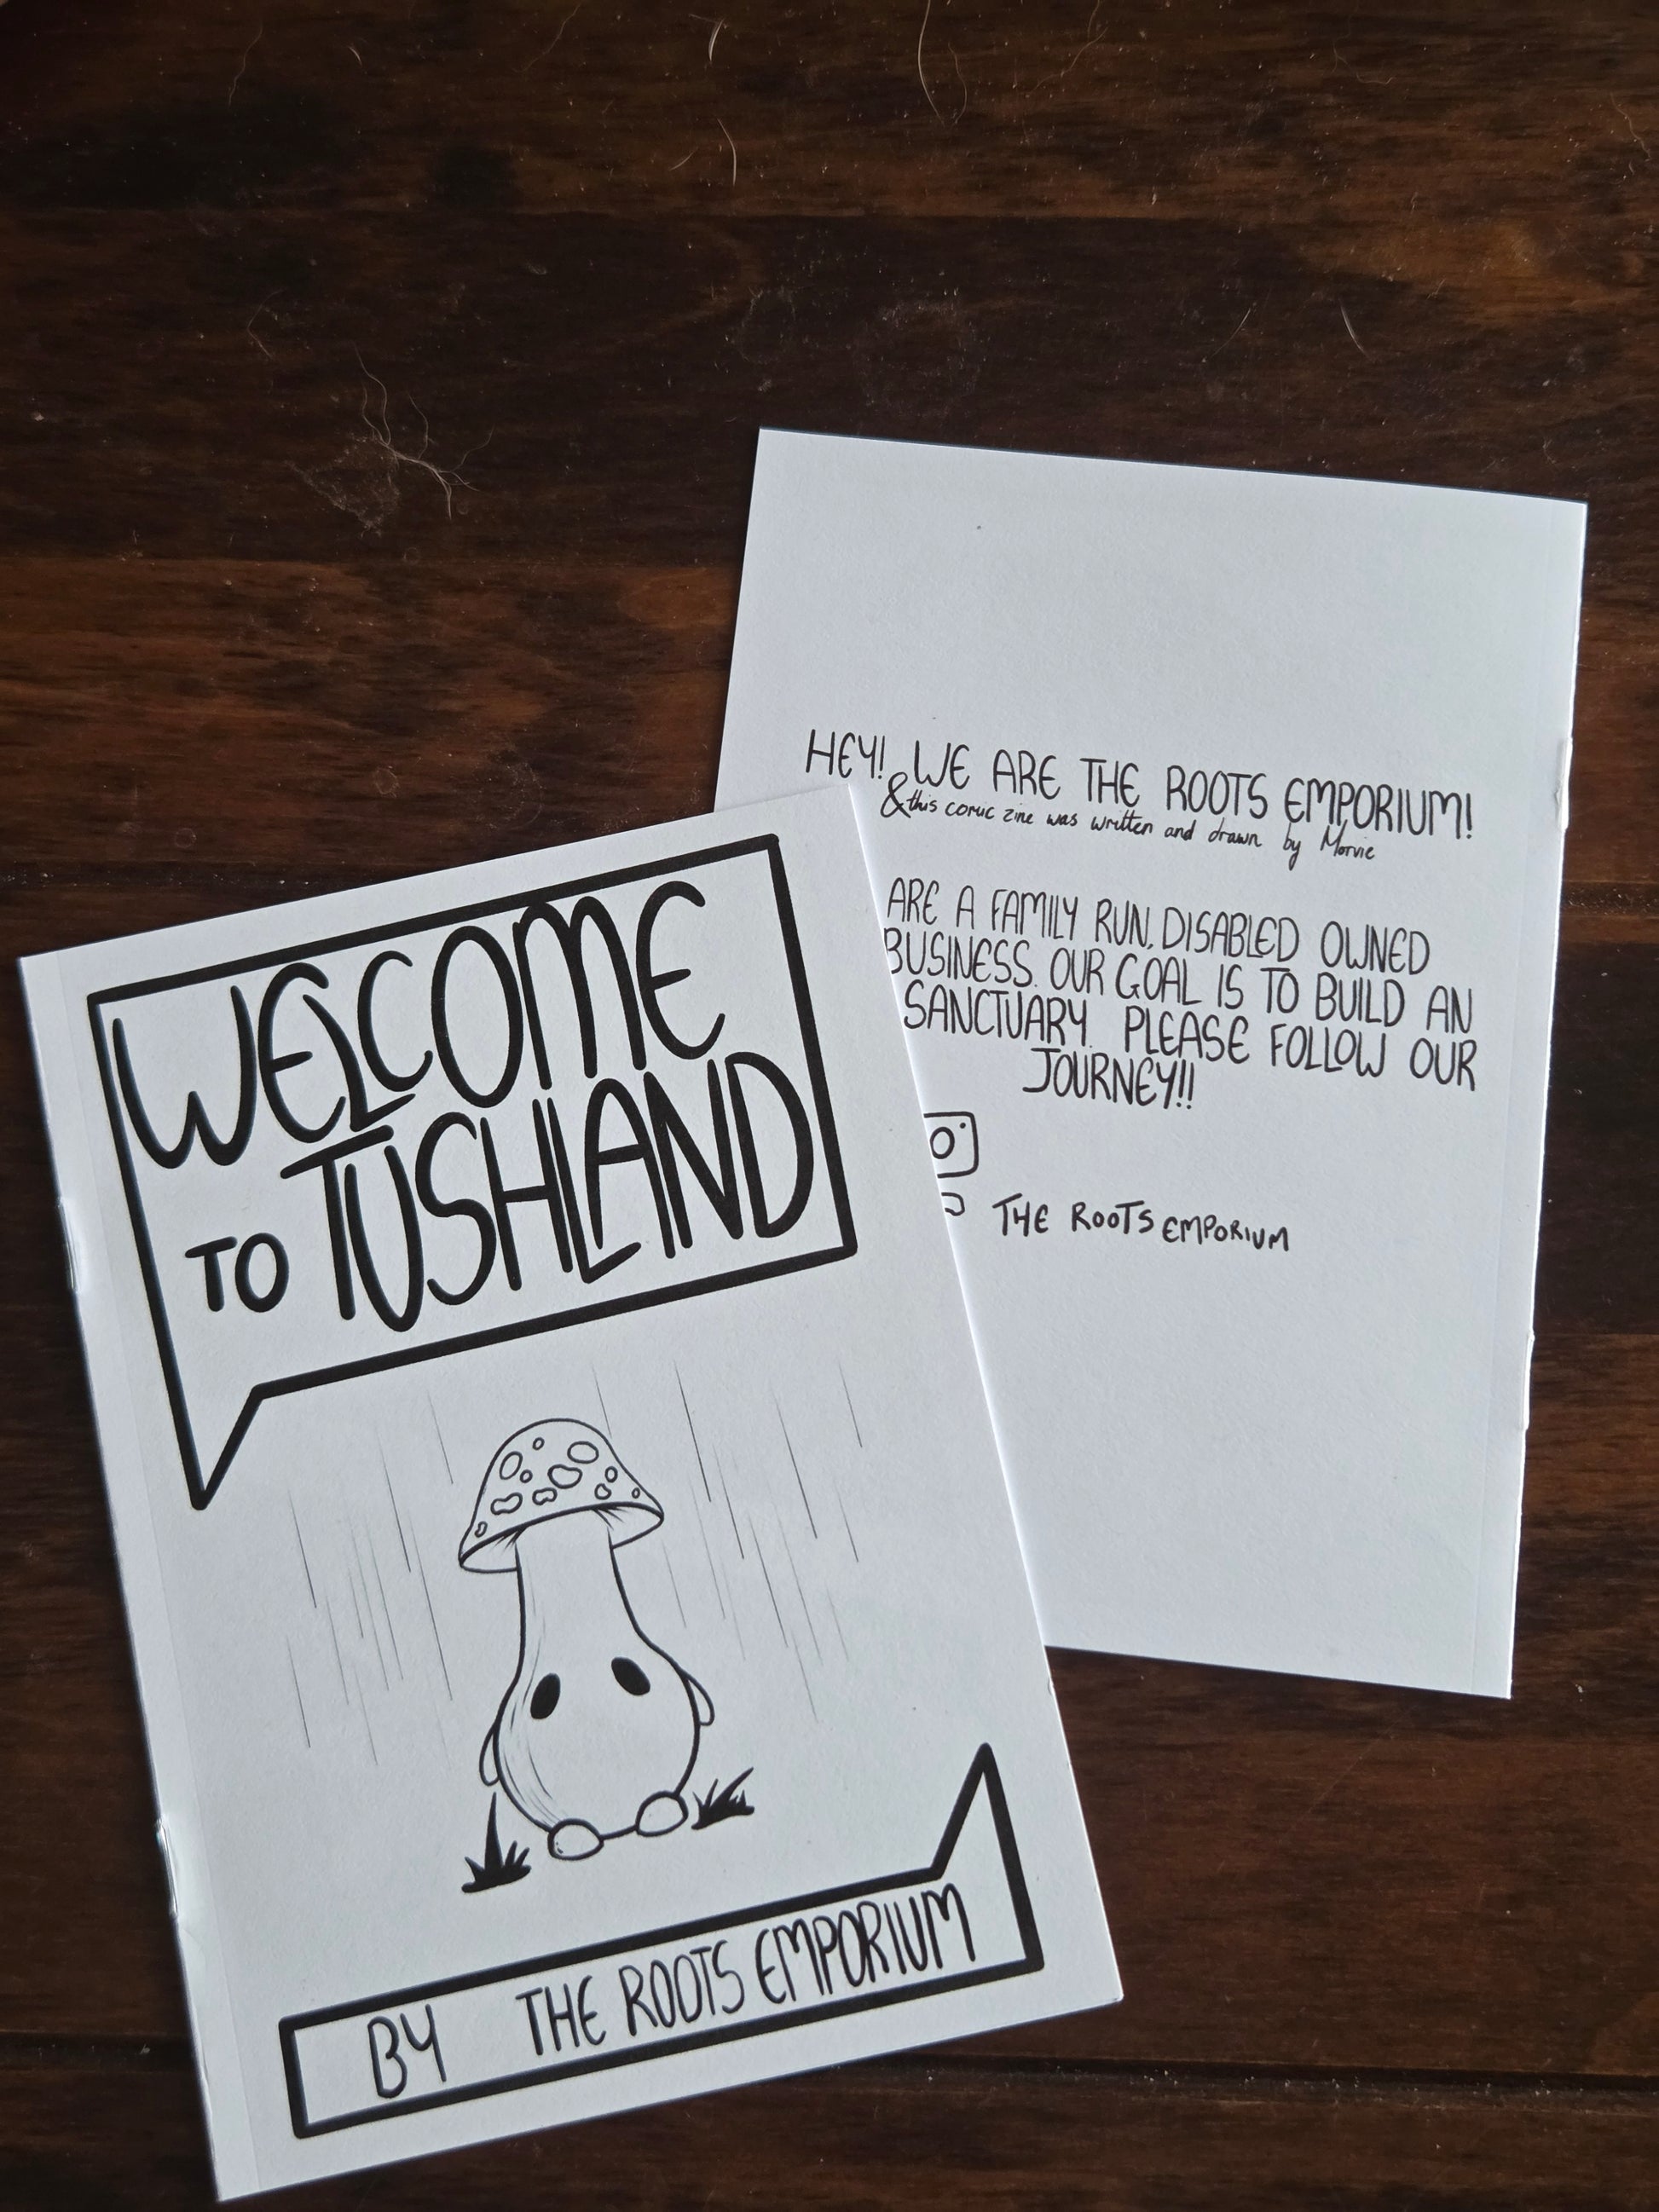 WELCOME
TO TUSHLAND
BY THE ROOTS EMPORIUM
HEY! WE ARE THE ROOTS EMPORIUM!
& this comic zine was written and drawn by Morvie
ARE A FAMILY RUN, DISABLED OWNED
BUSINESS. OUR GOAL IS TO BUILD AN
SANCTUARY. PLEASE FOLLOW OUR
JOURNEY!!
THE ROOTS EMPORIUM